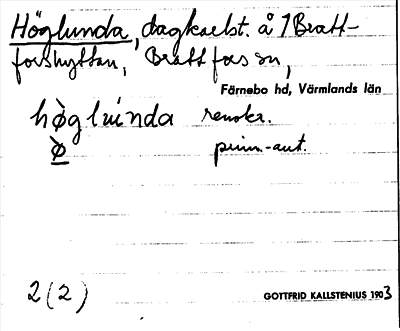 Höglunda, dagkarlst. å 1 Bratt-
forshyttan, Brattfors sn,
Färnebo hd, Värmlands län
hø̀glúnda renskr.
ø̀ prim.-ant.
2 (2)
GOTTFRID KALLSTENIUS 1903